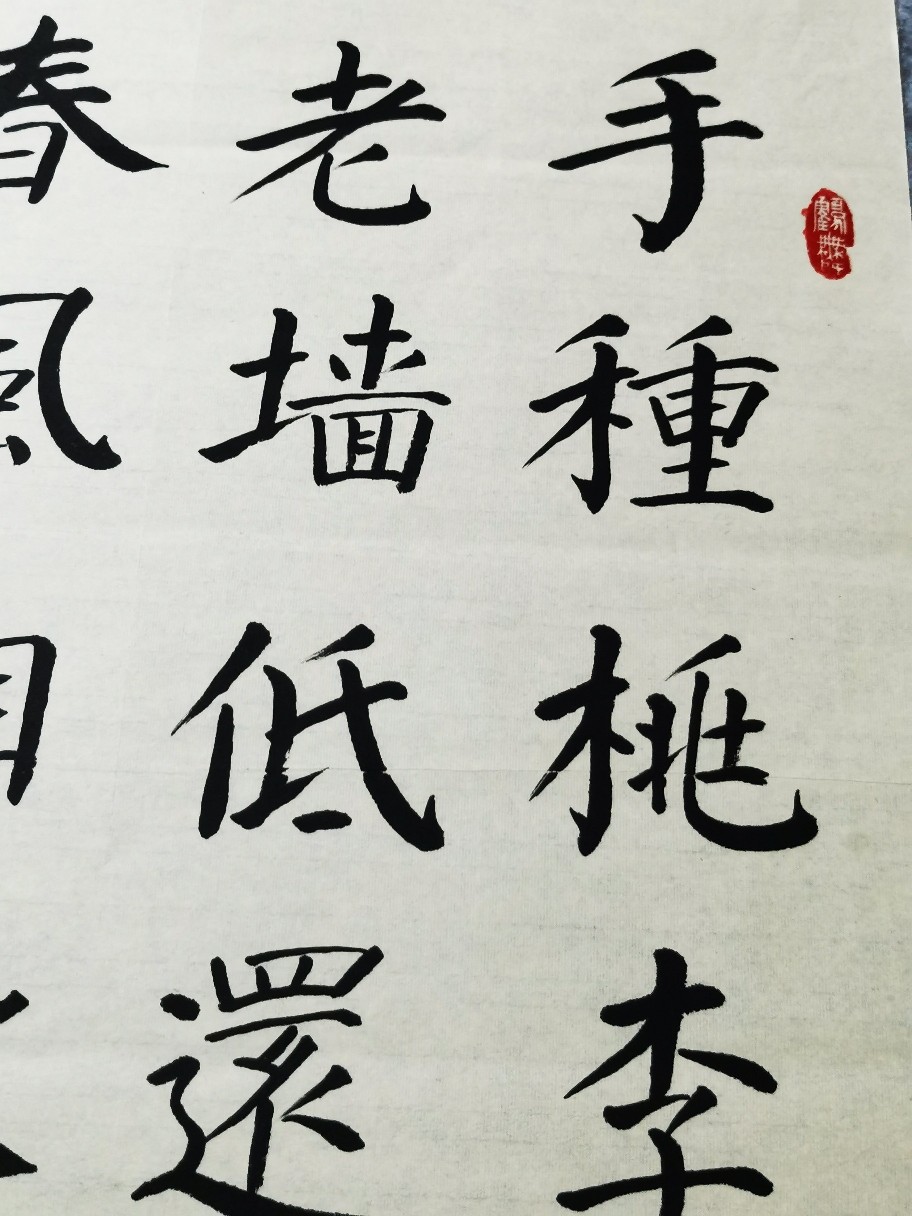 手種桃李
老墙低還
春風